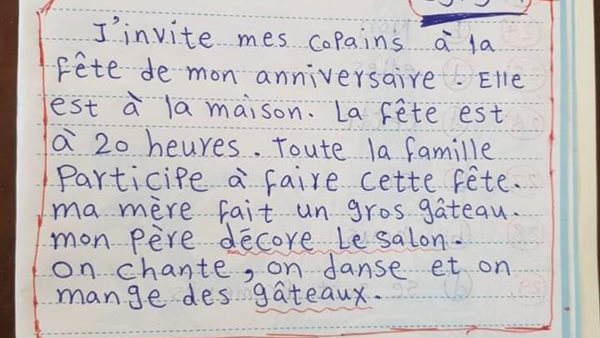 J'invite mes copains à la
fête de mon anniversaire. Elle
est à la maison. La fête est
à 20 heures. Toute la famille
Participe à faire cette fête.
ma mère fait un gros gâteau.
mon père décore le salon.
on chante, on danse et on
mange des gâteaux.